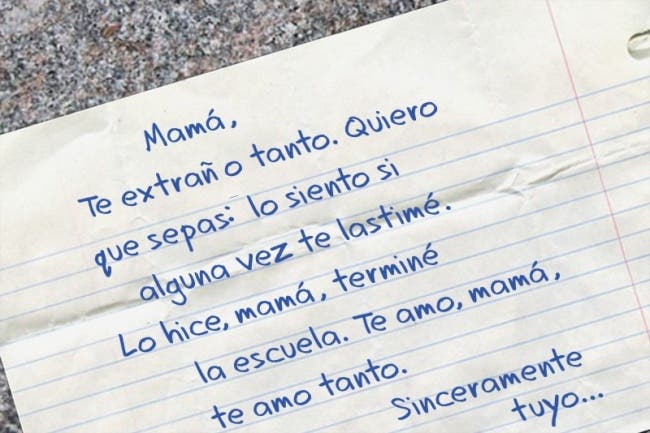 Mamá,
Te extraño tanto. Quiero
que sepas: lo siento si
alguna vez te lastimé.
Lo hice, mamá, terminé
la escuela. Te amo, mamá,
te amo tanto.
Sinceramente
tuyo...